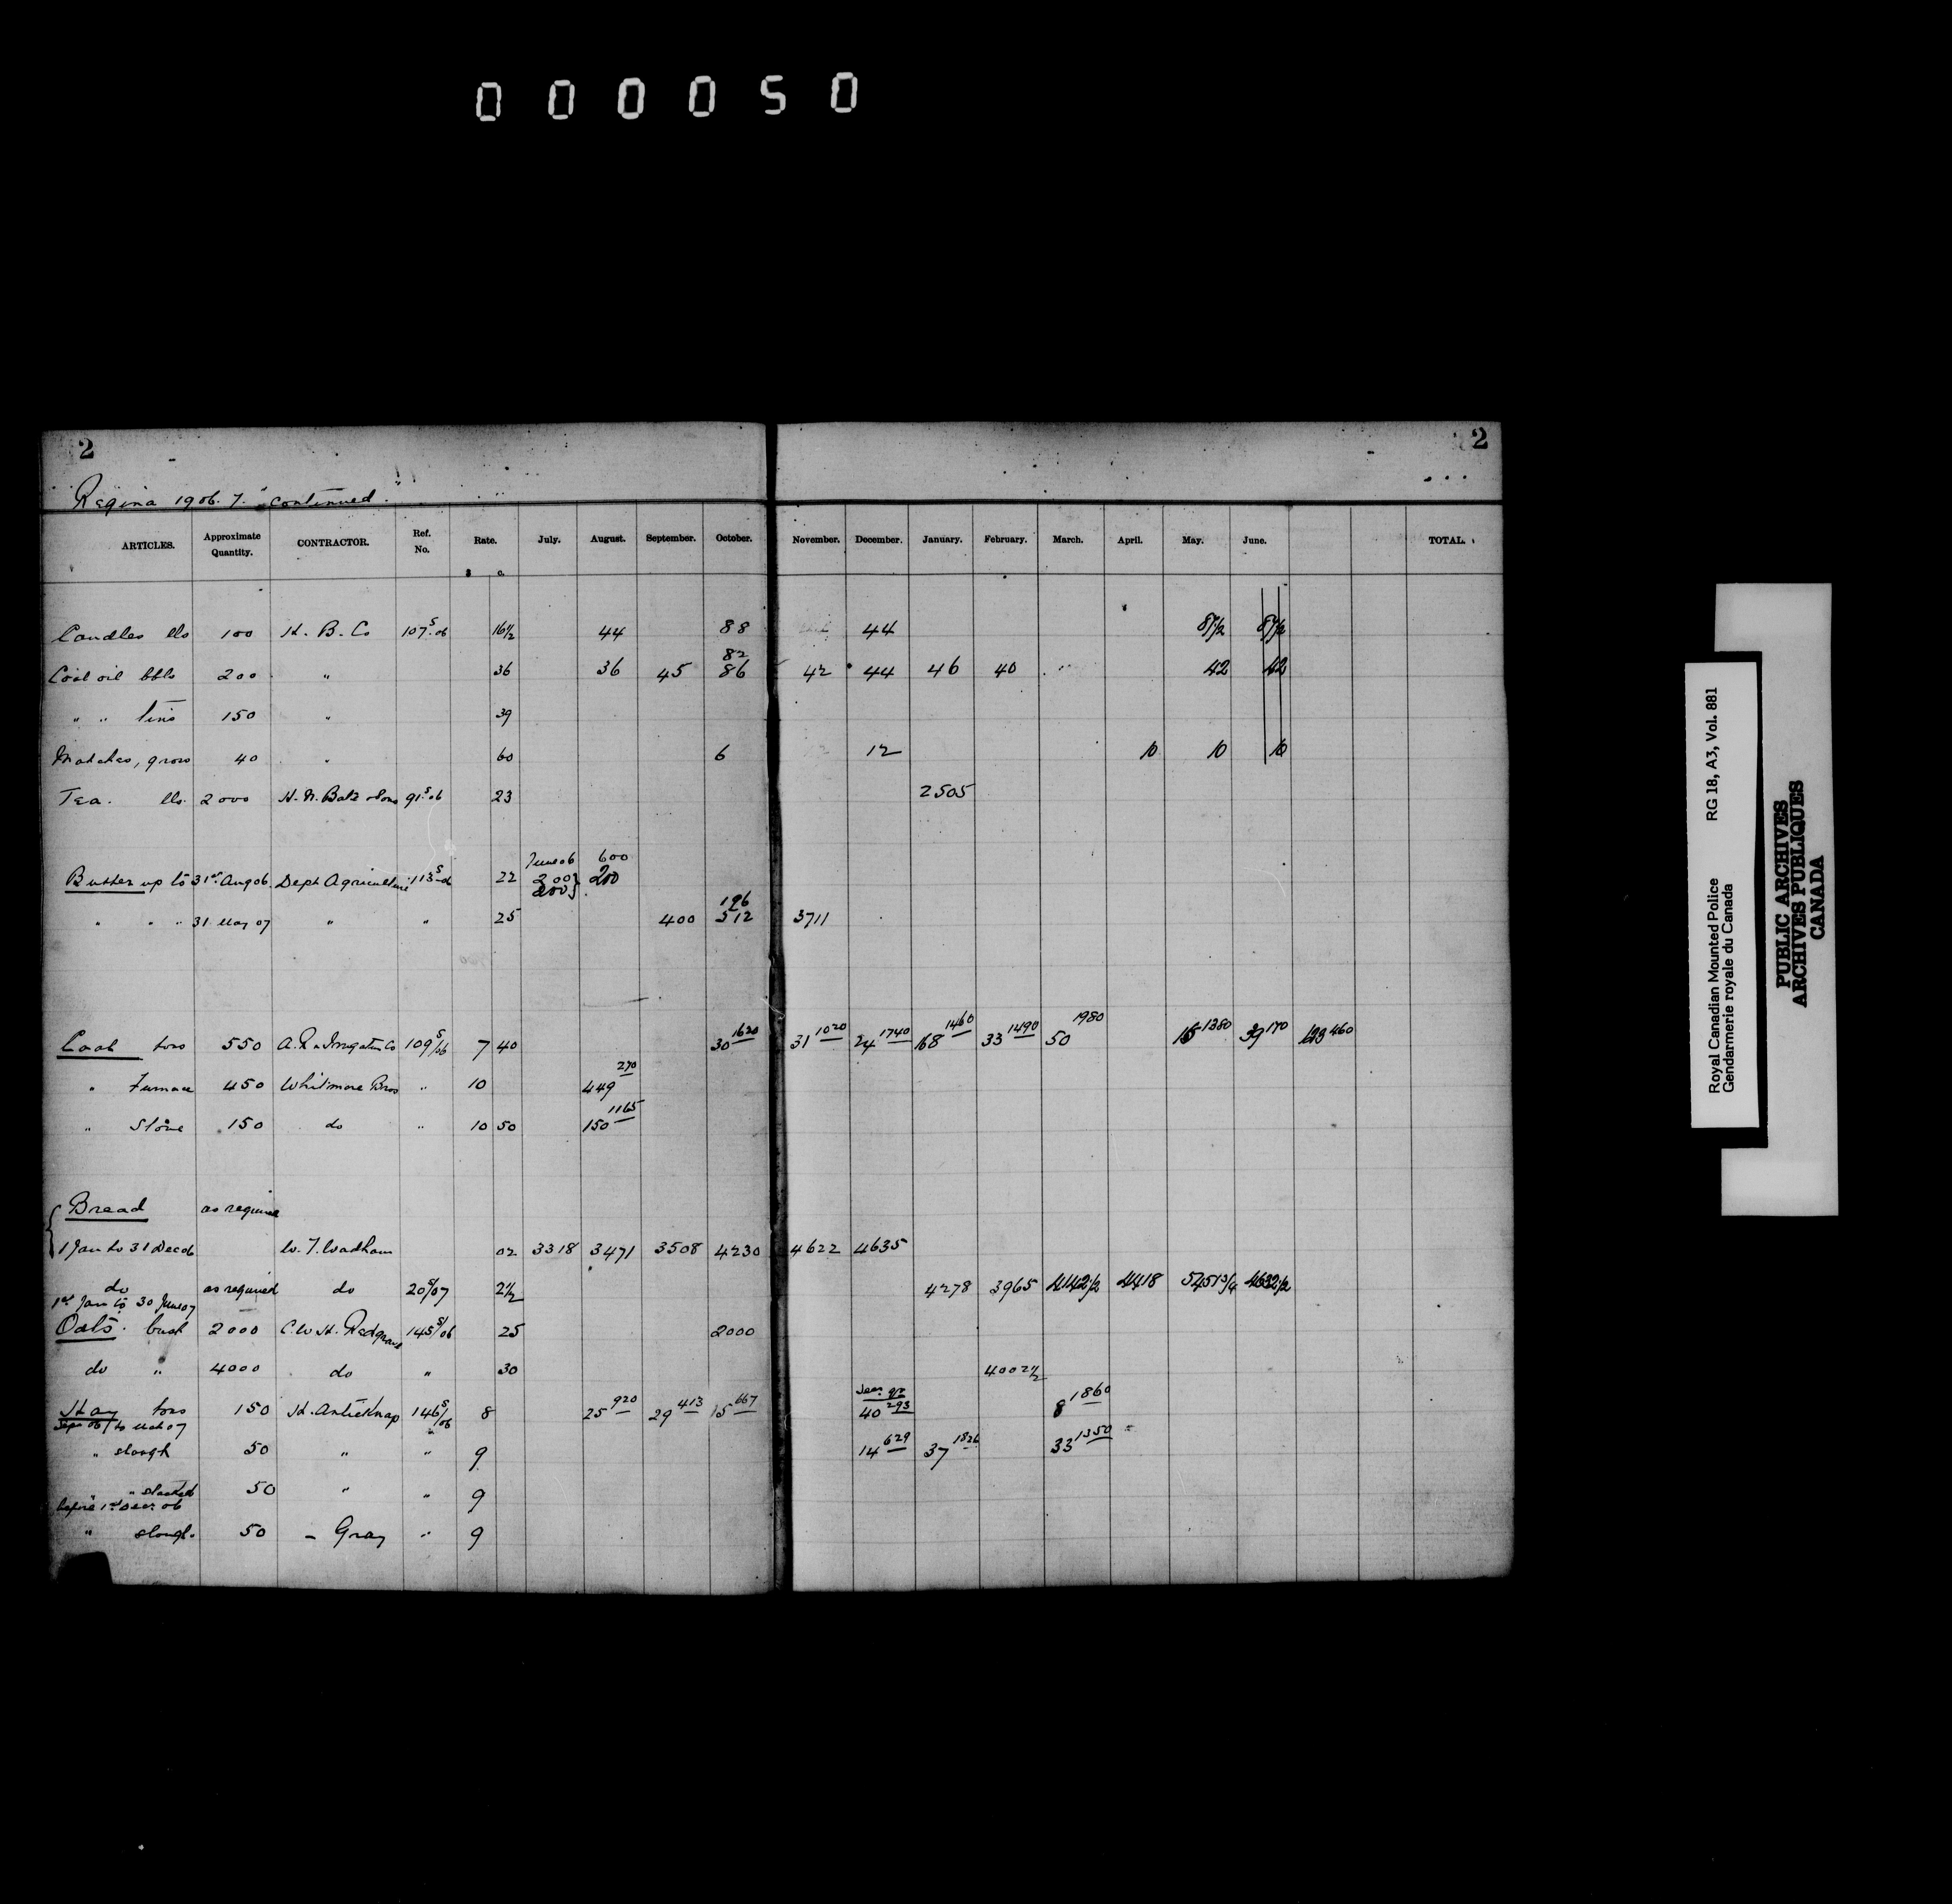 000050
2 2
Regina 1906.7. "continued."
ARTICLES. Approximate Quantity. CONTRACTOR. Ref. No. Rate. July. August. September. October. November. December. January. February. March. April. May. June. TOTAL.
$ c.
Candles lbs 100 H. B. Co 107 S 06 16 1/2 44 88 44 87 1/2 87 1/2
82
Coal oil bbls 200 " 36 36 45 86 42 44 46 40 42 42
" " tins 150 " 39
Matches, gross 40 " 60 6 12 10 10 10
Tea. lbs. 2000 H. N. Bate & Sons 91 S 06 23 2505
June 06 600
Butter up to 31st Aug 06. Dept Agriculture 113 S 06 22 200 200 } 200
196
" " " 31 May 07 " " 25 400 512 3711
Coal tons 550 A. R. & Irrigation Co 109 S/06 7 40 30 1620 31 1020 24 1740 168 1460 33 1490 50 1980 15 1380 39 170 460
" Furnace 450 Whitmore Bros " 10 449 270
" Stove 150 do " 10 50 150 1165
Bread as required
1 Jan to 31 Dec 06 W. T. Wadham 02 3318 3471 3508 4230 4622 4635
do as required do 20 S/07 2 1/2 4278 3965 4142 1/2 4418 5451 3/4 4632 1/2
1st Jan to 30 June 07
Oats. bush 2000 C. W. H. Redgrave 145 S/06 25 2000
do " 4000 do " 30 4002 1/2
Hay tons 150 H. Antieknap 146 S/06 8 25 920 29 413 15 667 40 293 8 1860
Sept 06 to Mch 07
" slough 50 " " 9 14 629 37 1826 33 1350
" " stacked 50 " " 9
before 1st Dec. 06
" slough. 50 - Gray " 9
Royal Canadian Mounted Police RG 18, A3, Vol. 881
Gendarmerie royale du Canada
PUBLIC ARCHIVES
ARCHIVES PUBLIQUES
CANADA